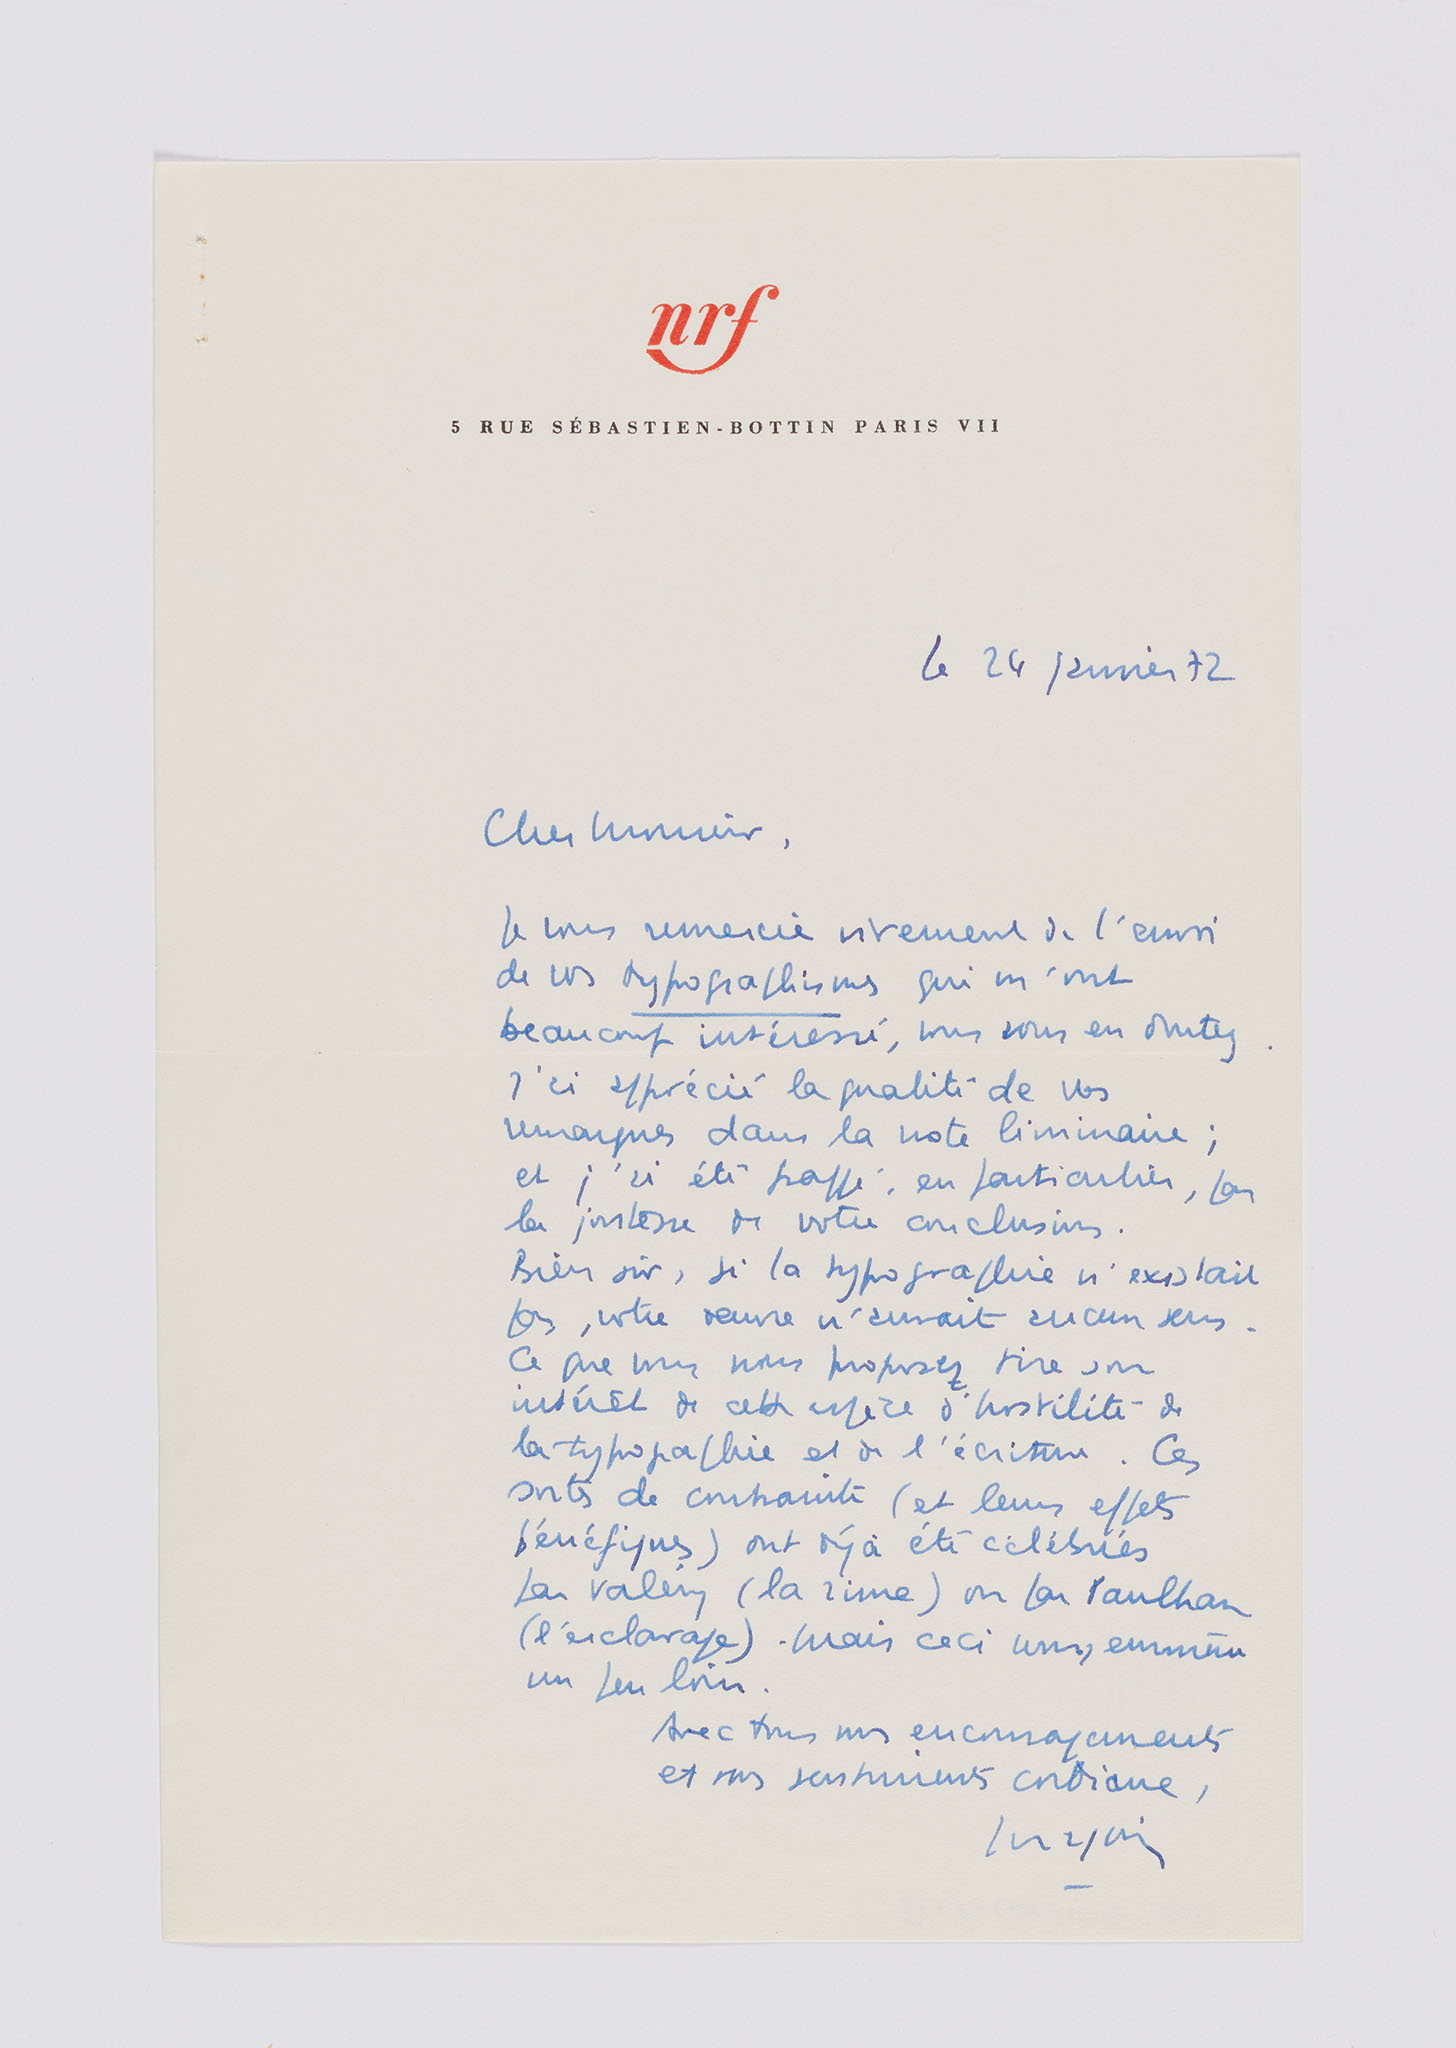 nrf
5 RUE SÉBASTIEN-BOTTIN PARIS VII
le 24 janvier 72
Cher Monsieur,
Je vous remercie vivement de l'envoi
de vos typographismes qui m'ont
beaucoup intéressé, vous vous en doutez.
J'ai apprécié la qualité de vos
remarques dans la note liminaire ;
et j'ai été frappé, en particulier, par
la justesse de votre conclusion.
Bien sûr, si la typographie n'existait
pas, votre œuvre n'aurait aucun sens.
Ce que vous nous proposez tire son
intérêt de cette espèce d'hostilité de
la typographie et de l'écriture. Ces
sortes de contrainte (et leurs effets
bénéfiques) ont déjà été célébrés
par Valéry (la rime) ou par Paulhan
(l'esclavage). Mais ceci nous emmène
un peu loin.
Avec tous mes encouragements
et mes sentiments cordiaux,